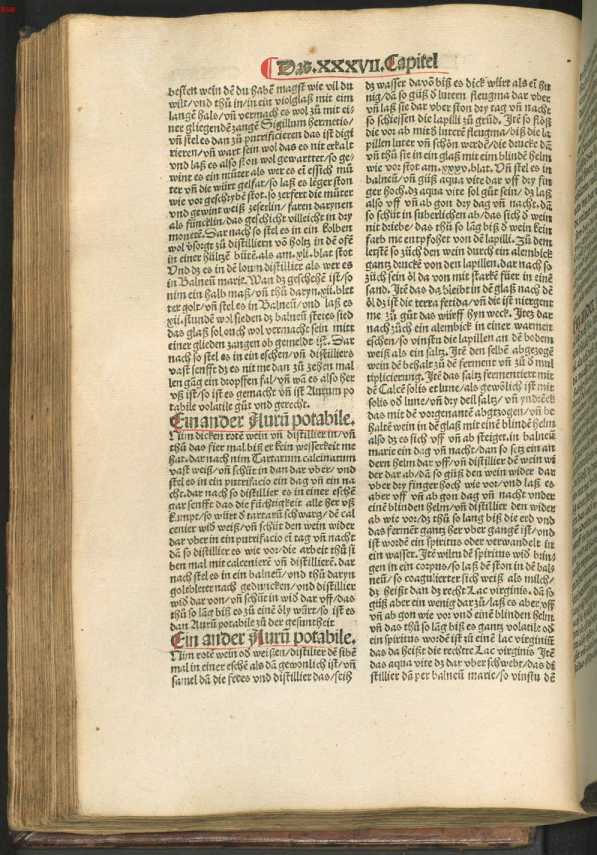 Das .XXXVII. Capitel
besten wein dē du habē magst wie vil du
wilt/vnd thů in/in ein violglaß mit eim
langē hals/vñ vermach es wol zů mit ei-
ner gliegendē zangē Sigillum hermetis/
vñ stel es dan zů putrificieren das ist digi
rieren/vñ wart sein wol das es nit erkalt
vnd laß es also ston wol gewartter/so ge-
wint es ein můter als wer es ein essich mů
ter vñ die würt gelfar/so laß es lēger ston
wie vor geschrybē stot. so zerfert die můter
vnd gewint weiß zeserlin/faren darynen
als füncklin/das geschicht villeicht in dry
monetē. Dar nach so stel es in ein kolben
wol v̓sorgt zů distilliern vō holtz in dē ofē
in einer hültzē bütē.als am.xli.blat stot
Vnd dz es in dē louin distillier als wer es
in Balneū marie. Wan dz geschehē ist/so
nim ein halb maß/vñ thů daryn.xii.blet
ter golt/vñ stel es in Balneū/vnd laß es
xii.stundē wol sieden dz balneū stetes sied
das glaß sol ouch wol vermacht sein mitt
einer glieden zangen ob gemeldt ist. Dar
nach so stel es in ein eschen/vñ distilliers
vast senfft dz es nit me dan zů zehen mal
len gāg ein tropffen fal/vñ wā es also her
vß ist/so ist es gemacht vñ ist Aurum po
tabile volatile gůt vnd gerecht.
Ein ander Aurū potabile.
Nim dicken rotē wein vñ distillier in/vñ
thů das fier mal biß er kein wesserkeit me
hab dar nach nim Tartarum calcinatum
vast weiß/vñ schüt in dan dar vber/vnd
stel es in ein putrifacio ein dag vñ ein na
cht.dar nach so distillier es in einer eschē
gar senfft das die füchtigkeit alle her vß
kumpt/so würt d̓ tartarū schwarg/dē cal
cenier wid̓ weiß/vñ schüt den wein wider
dar vber in ein putrifacio ei tag vñ nacht
dā so distillier es wie vor/die arbeit thů si
ben mal mit calcenierē vñ distillierē.dar
nach stel es in ein balneū/vnd thů daryn
goltbleter nach gedůncken/vnd distillier
wid̓ dar von/vñ schüt in wid̓ dar vff/das
thů so lāg biß es zů einē öly würt/so ist es
dan Aurū potabile zů der gesuntheit
Ein ander Aurū potabile.
Nim rotē wein od̓ weißen/distilier dē sibē
mal in einer eschē als dā gewonlich ist/vñ
samel dā die feces vnd distillier das/seih
dz wasser davō biß es dick würt als ei hu
nig/dā so güß d̓ lutern fleugma dar vber
vñ laß sie dar vber ston dry tag vñ nacht
so schiessen die lapilli zů grūd. Itē so flöß
die vor ab mit d̓ luterē fleugma/biß die la
pillen luter vñ schön werdē/die drucke dā
vñ thů sie in ein glaß mit eim blindē helm
wie vor stot am.xxxv.blat. Vñ stel es in
balneū/vñ güß aqua vite dar vff dry fin
ger hoch.dz aqua vite sol gůt sein/dz laß
also vff vñ ab gon dry dag vñ nacht. dā
so schüt in suberlichen ab/das sich d̓ wein
nit driebe/das thů so lāg biß d̓ wein kein
farb me entpfohet von dē lapilli. Zů dem
letstē so züch den wein durch ein alembick
gantz druckē von den lapillen. dar nach so
züch sein öl da von mit starkē füer in einē
sand. Itē das da bleibt in dē glaß nach dē
öl dz ist die terra fetida/vñ die ist niergent
me zů gůt das würff hyn weck. Itez dar
nach züch ein alembick in einer warmen
eschen/so vinstu die lapillen an dē bodem
weiß als ein saltz. Itē den selbē abgezogē
wein dē behalt zů dē ferment vñ zů d̓ mul
tiplicierung. Itē das saltz fermentiert mit
dē Calcē solis et lune/als gewōlich ist mit
solis od̓ lune/vñ dry deil saltz/vñ yndrēck
das mit dē vorgenantē abgtzogen/vñ be
haltē wein in dē glaß mit einē blindē helm
also dz es sich vff vñ ab steiget.in balneū
marie ein dag vñ nacht/dan so setz ein an
dern helm dar vff/vñ distillier dē wein wi
der dar ab/dā so güß den wein wider dar
vber dry finger hoch wie vor/vnd laß es
aber vff vñ ab gon dag vñ nacht vnder
einē blinden helm/vñ distillier den wider
ab wie vor/dz thů so lang biß die erd vnd
das fermēt gantz her vber gangē ist/vnd
ist wordē ein spiritus oder verwandelt in
ein wasser. Itē wiltu dē spiritus wid̓ brin-
gen in ein corpus/so laß dē ston in dē bal-
neū/so coagulierter sich weiß als milch/
dz heißt dan dz recht Lac virginis. dā so
güß aber ein wenig dar zů/laß es aber vff
vñ ab gon wie vor vnd einē blinden helm
vñ das thů so lāg biß es gantz volatile od̓
ein spiritus wordē ist zů einē lac virginis
das da heißt die rechte Lac virginis Itē
das aqua vite dz dar vber schwebt/das di
stillier dā per balneū marie/so vinstu dē